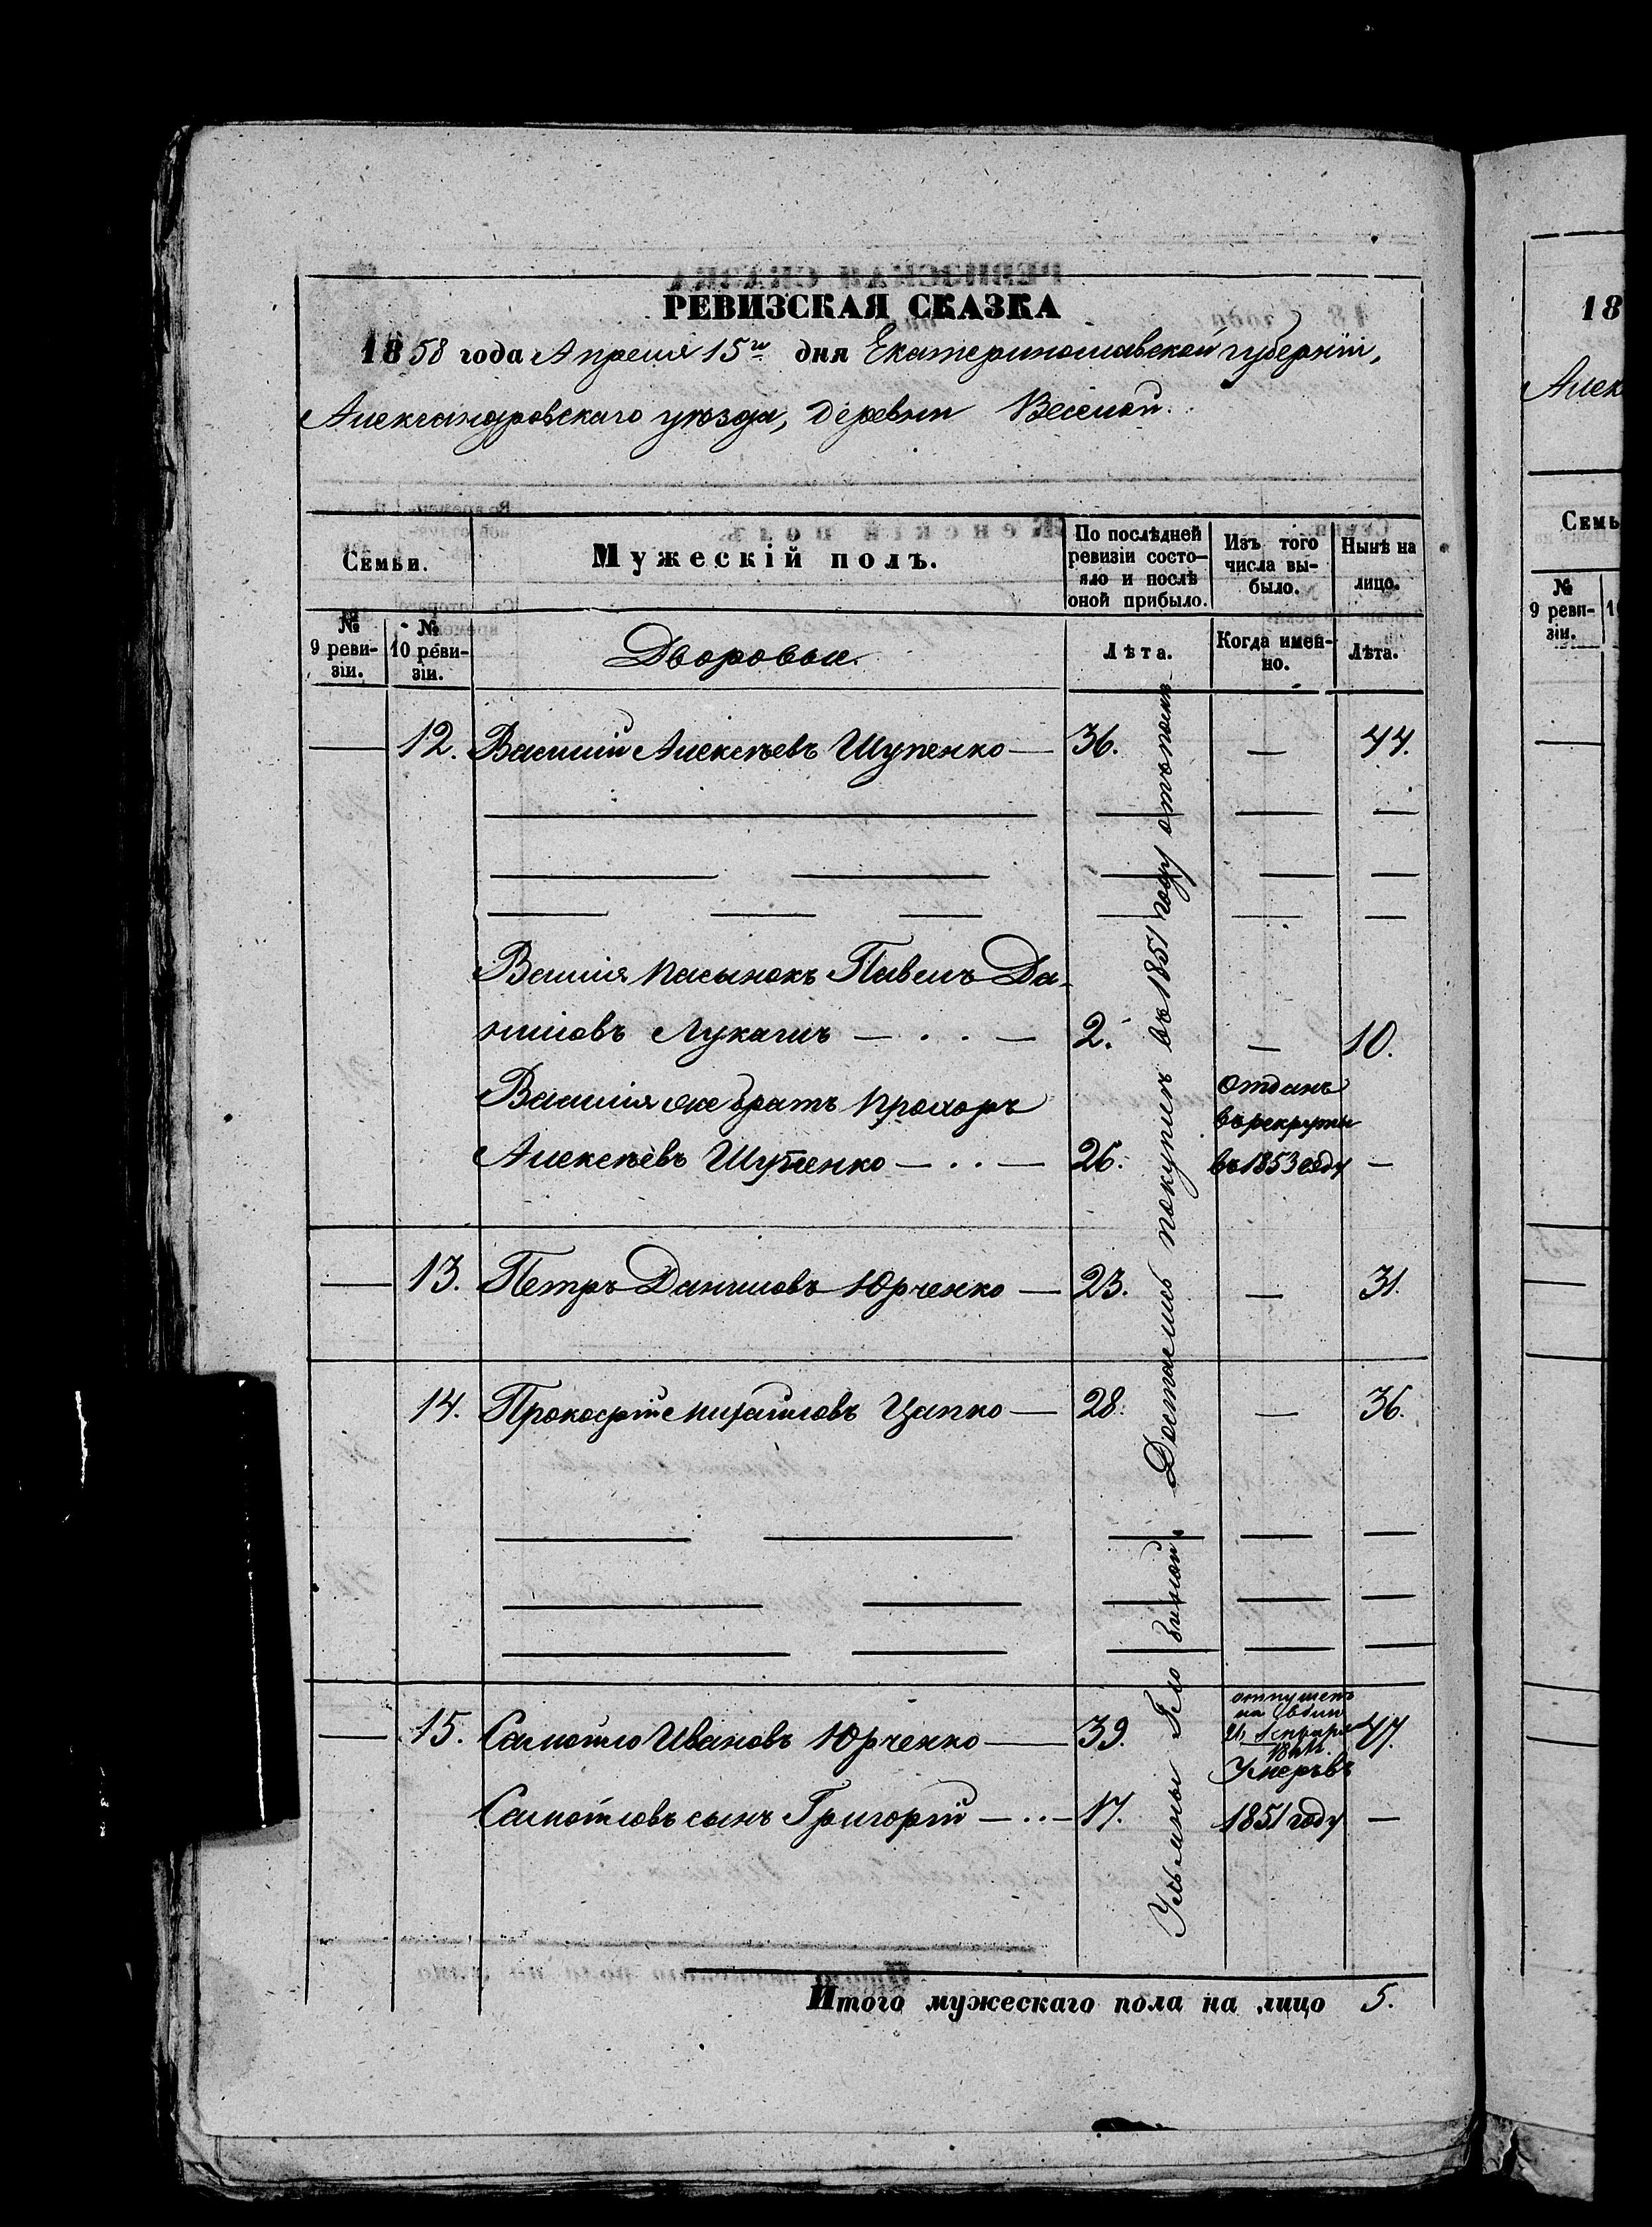 РЕВИЗСКАЯ СКАЗКА
1858 года Апреля 15го дня Екатеринославской губернiи,
Александровскаго уѣзда, деревни Веселой.
Семьи.
Мужескiй полъ.
По послѣдней ревизiи состояло и послѣ оной прибыло.
Изъ того числа выбыло.
Нынѣ на лицо.
№ 9 ревизiи.
№ 10 ревизiи.
Дворовые.
Лѣта.
Когда именно.
Лѣта.
12. Василий Алексѣевъ Шупенко — 36. — 44.
Василiя пасынокъ Павелъ Да-
ниловъ Лукашъ — 2. — 10.
Василiя же братъ Прохоръ
Алексѣевъ Шупенко — 26. Отданъ въ рекруты въ 1853 году —
13. Петръ Даниловъ Юрченко — 23. — 31.
14. Прокофiй Михайловъ Цапко — 28. — 36.
15. Самойло Ивановъ Юрченко — 39. отпущенъ на 47.
Самойловъ сынъ Григорiй — 17. Умеръ въ 1851 году —
Достались покупкѣ въ 1851 году отъ
Итого мужескаго пола на лицо 5.
18
Алек
Семь
№ 9 ревизiи.